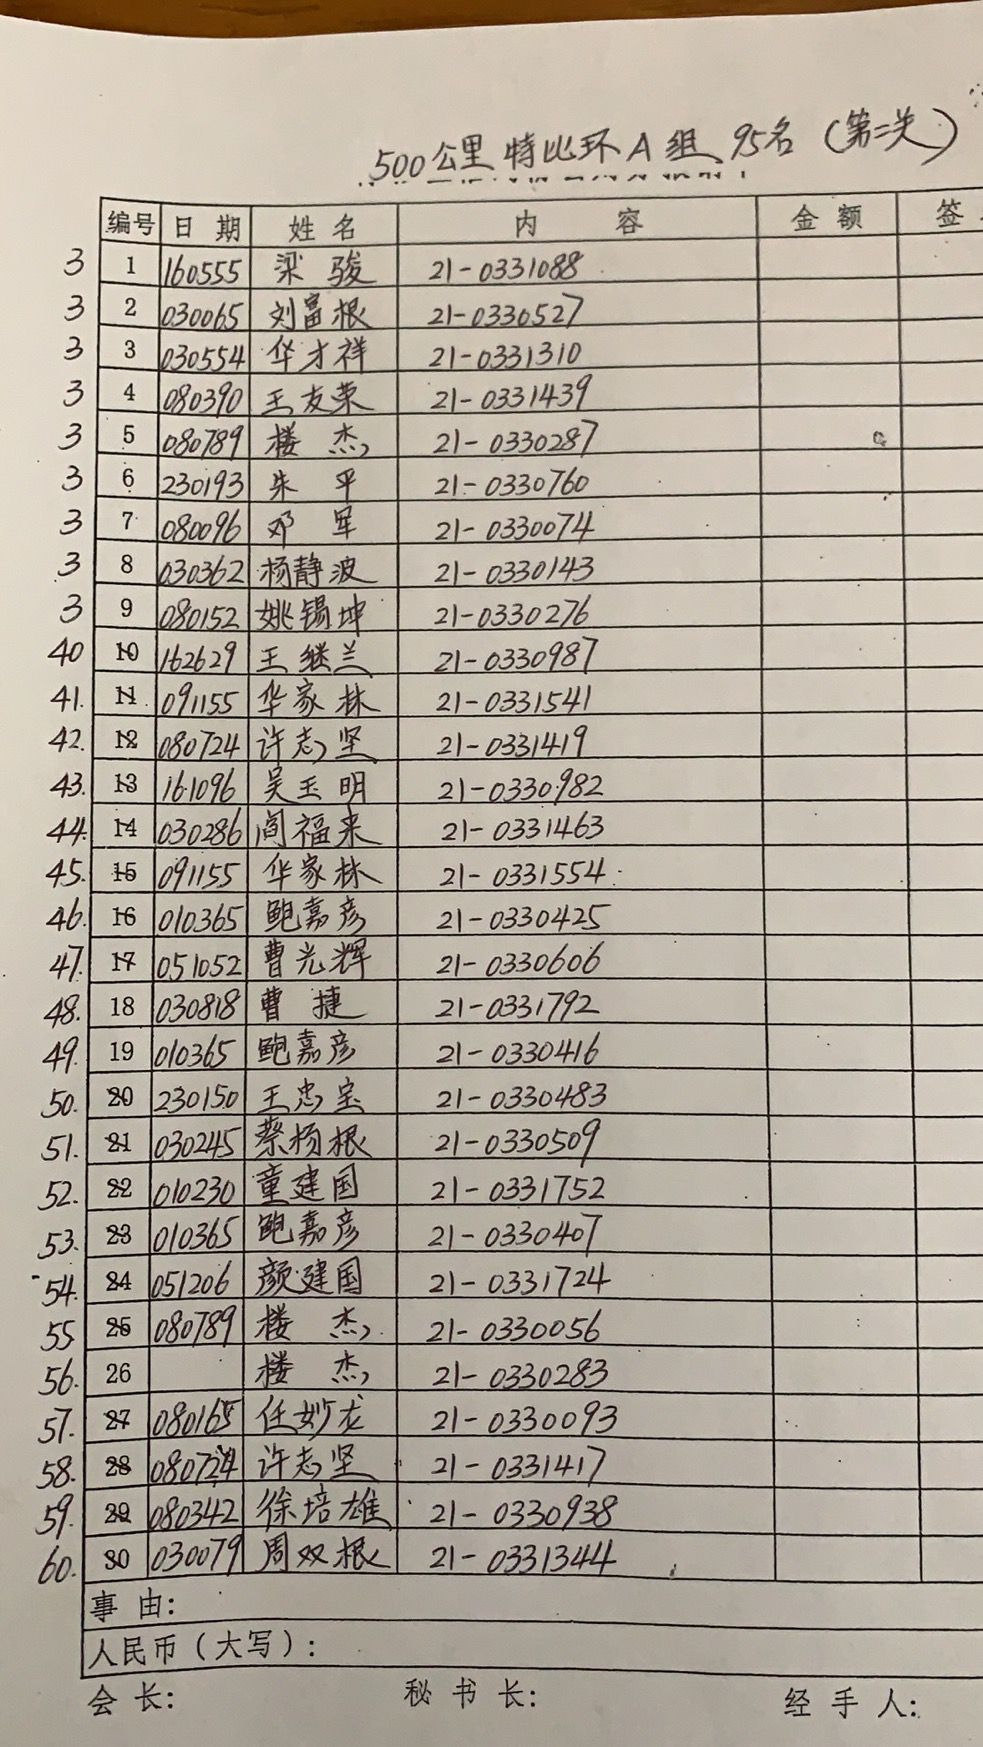 500公里特比环A组 95名（第二关）
编号 日期 姓名 内容 金额 签
3 1 160555 梁骏 21-0331088
3 2 030065 刘富根 21-0330527
3 3 030554 华才祥 21-0331310
3 4 080390 王友荣 21-0331439
3 5 080789 楼杰 21-0330287
3 6 230193 朱平 21-0330760
3 7 080096 邓军 21-0330074
3 8 030362 杨静波 21-0330143
3 9 080152 姚锡坤 21-0330276
40 10 162629 王继兰 21-0330987
41. 11 091155 华家林 21-0331541
42. 12 080724 许志坚 21-0331419
43. 13 161096 吴玉明 21-0330982
44. 14 030286 阎福来 21-0331463
45. 15 091155 华家林 21-0331554
46. 16 010365 鲍嘉彦 21-0330425
47. 17 051052 曹光辉 21-0330606
48. 18 030818 曹捷 21-0331792
49. 19 010365 鲍嘉彦 21-0330416
50. 20 230150 王忠宝 21-0330483
51. 21 030245 蔡杨根 21-0330509
52. 22 010230 童建国 21-0331752
53. 23 010365 鲍嘉彦 21-0330407
54. 24 051206 颜建国 21-0331724
55 25 080789 楼杰 21-0330056
56. 26 楼杰 21-0330283
57. 27 080165 任妙龙 21-0330093
58. 28 080724 许志坚 21-0331417
59. 29 080342 徐培雄 21-0330938
60. 30 030079 周双根 21-0331344
事由：
人民币（大写）：
会长： 秘书长： 经手人：